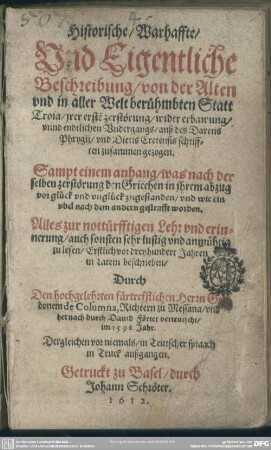 Historische/ Warhaffte/
Vnd Eigentliche
Beschreibung/ von der Alten
vnd in aller Welt berühmbten Statt
Troia/ jrer erste zerstörung/ wider erbawung/
vnnd endtlichen Vndergangs/ auß des Daretis
Phrygij/ vnd Dictis Cretensis schriff-
ten zusammen gezogen.
Sampt einem anhang/ was nach der
selben zerstörung den Griechen in jhrem abzug
vor glück vnd vnglück zugestanden/ vnd wie ein
vbel nach dem andern gestrafft worden.
Alles zur nottürfftigen Lehr vnd erin-
nerung/ auch sonsten sehr lustig vnd anmütig
zu lesen/ Erstlich vor dreyhundert Jahren
in Latein beschrieben/
Durch
Den hochgelehrten fürtrefflichen Herrn
donem de Colomna, Richtern zu Messana/
her nach durch Dauid Förter verteutscht/
im 1598 Jahr.
Dergleichen vor niemals/ in Teutscher spraach
in Truck außgangen.
Getruckt zu Basel/ durch
Johann Schröter.
1612.